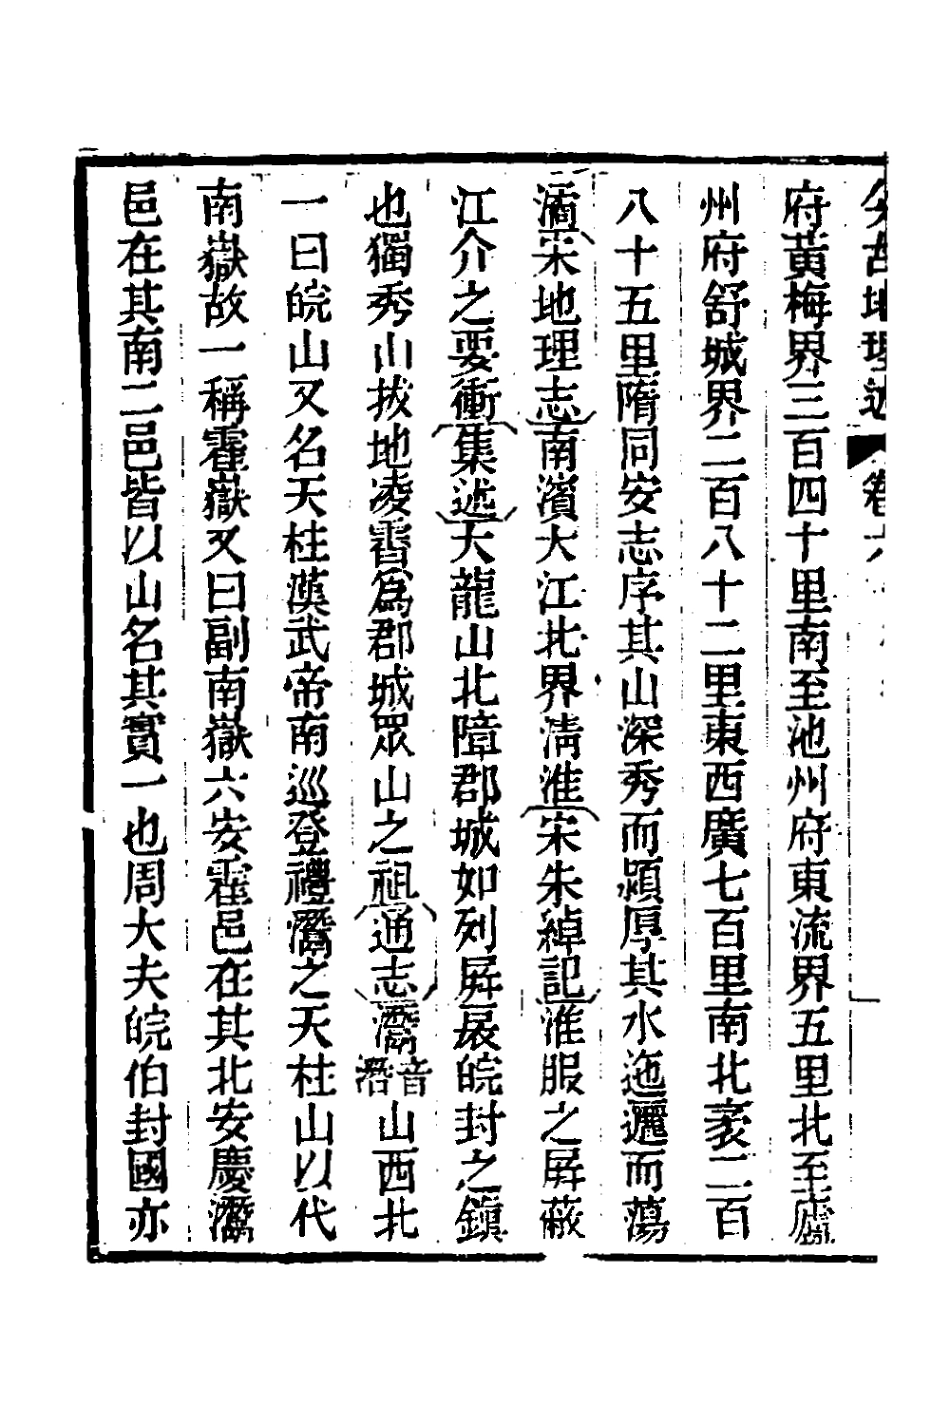 古地理述 卷六
府黃梅界三百四十里南至池州府東流界五里北至廬
州府舒城界二百八十二里東西廣七百里南北袤二百
八十五里隋同安志序其山深秀而潁厚其水迤邐而蕩
潏宋地理志南濱大江北界淸淮宋朱綽記淮服之屛蔽
江介之要衝集述大龍山北障郡城如列屛扆皖封之鎭
也獨秀山拔地凌霄爲郡城眾山之祖通志灊音潛山西北
一曰皖山又名天柱漢武帝南巡登禮灊之天柱山以代
南嶽故一稱霍嶽又曰副南嶽六安霍邑在其北安慶灊
邑在其南二邑皆以山名其實一也周大夫皖伯封國亦